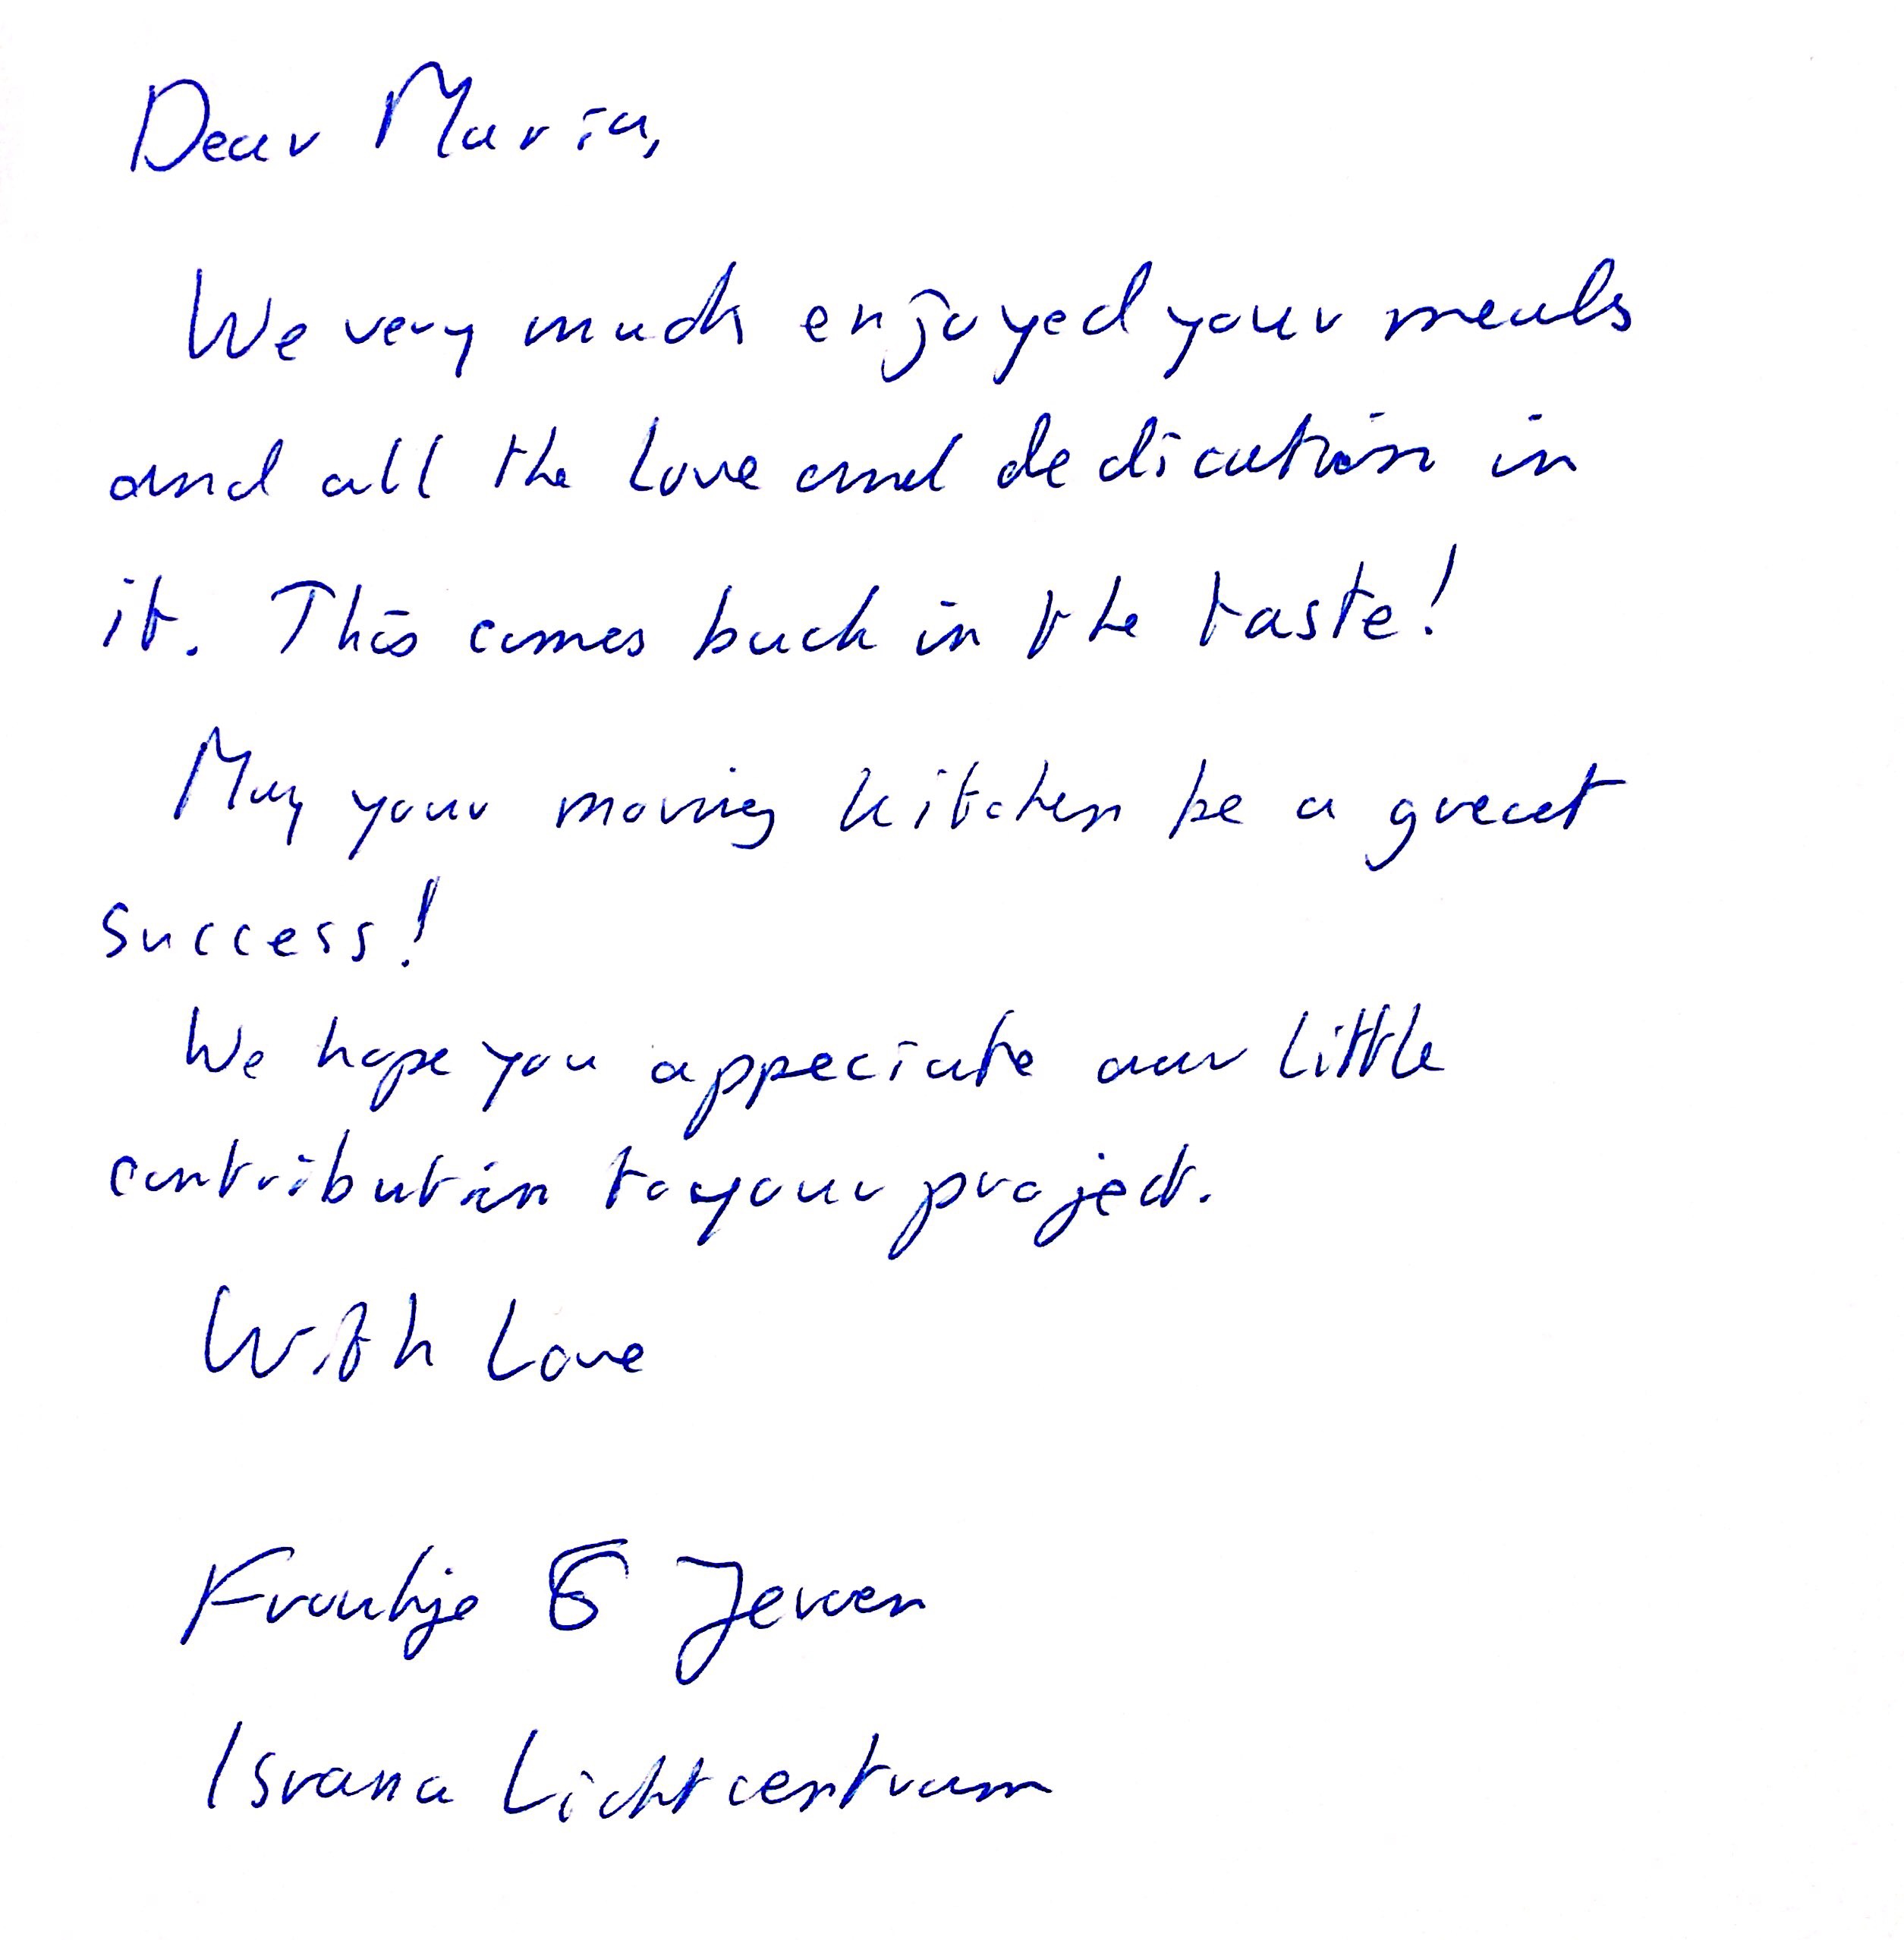 Dear Maria,
We very much enjoyed your meals
and all the love and dedication in
it. This comes back in the taste!
May your moving kitchen be a great
success!
We hope you appreciate our little
contribution to your project.
With Love
Froukje & Jeroen
Isvana Lichtcentrum